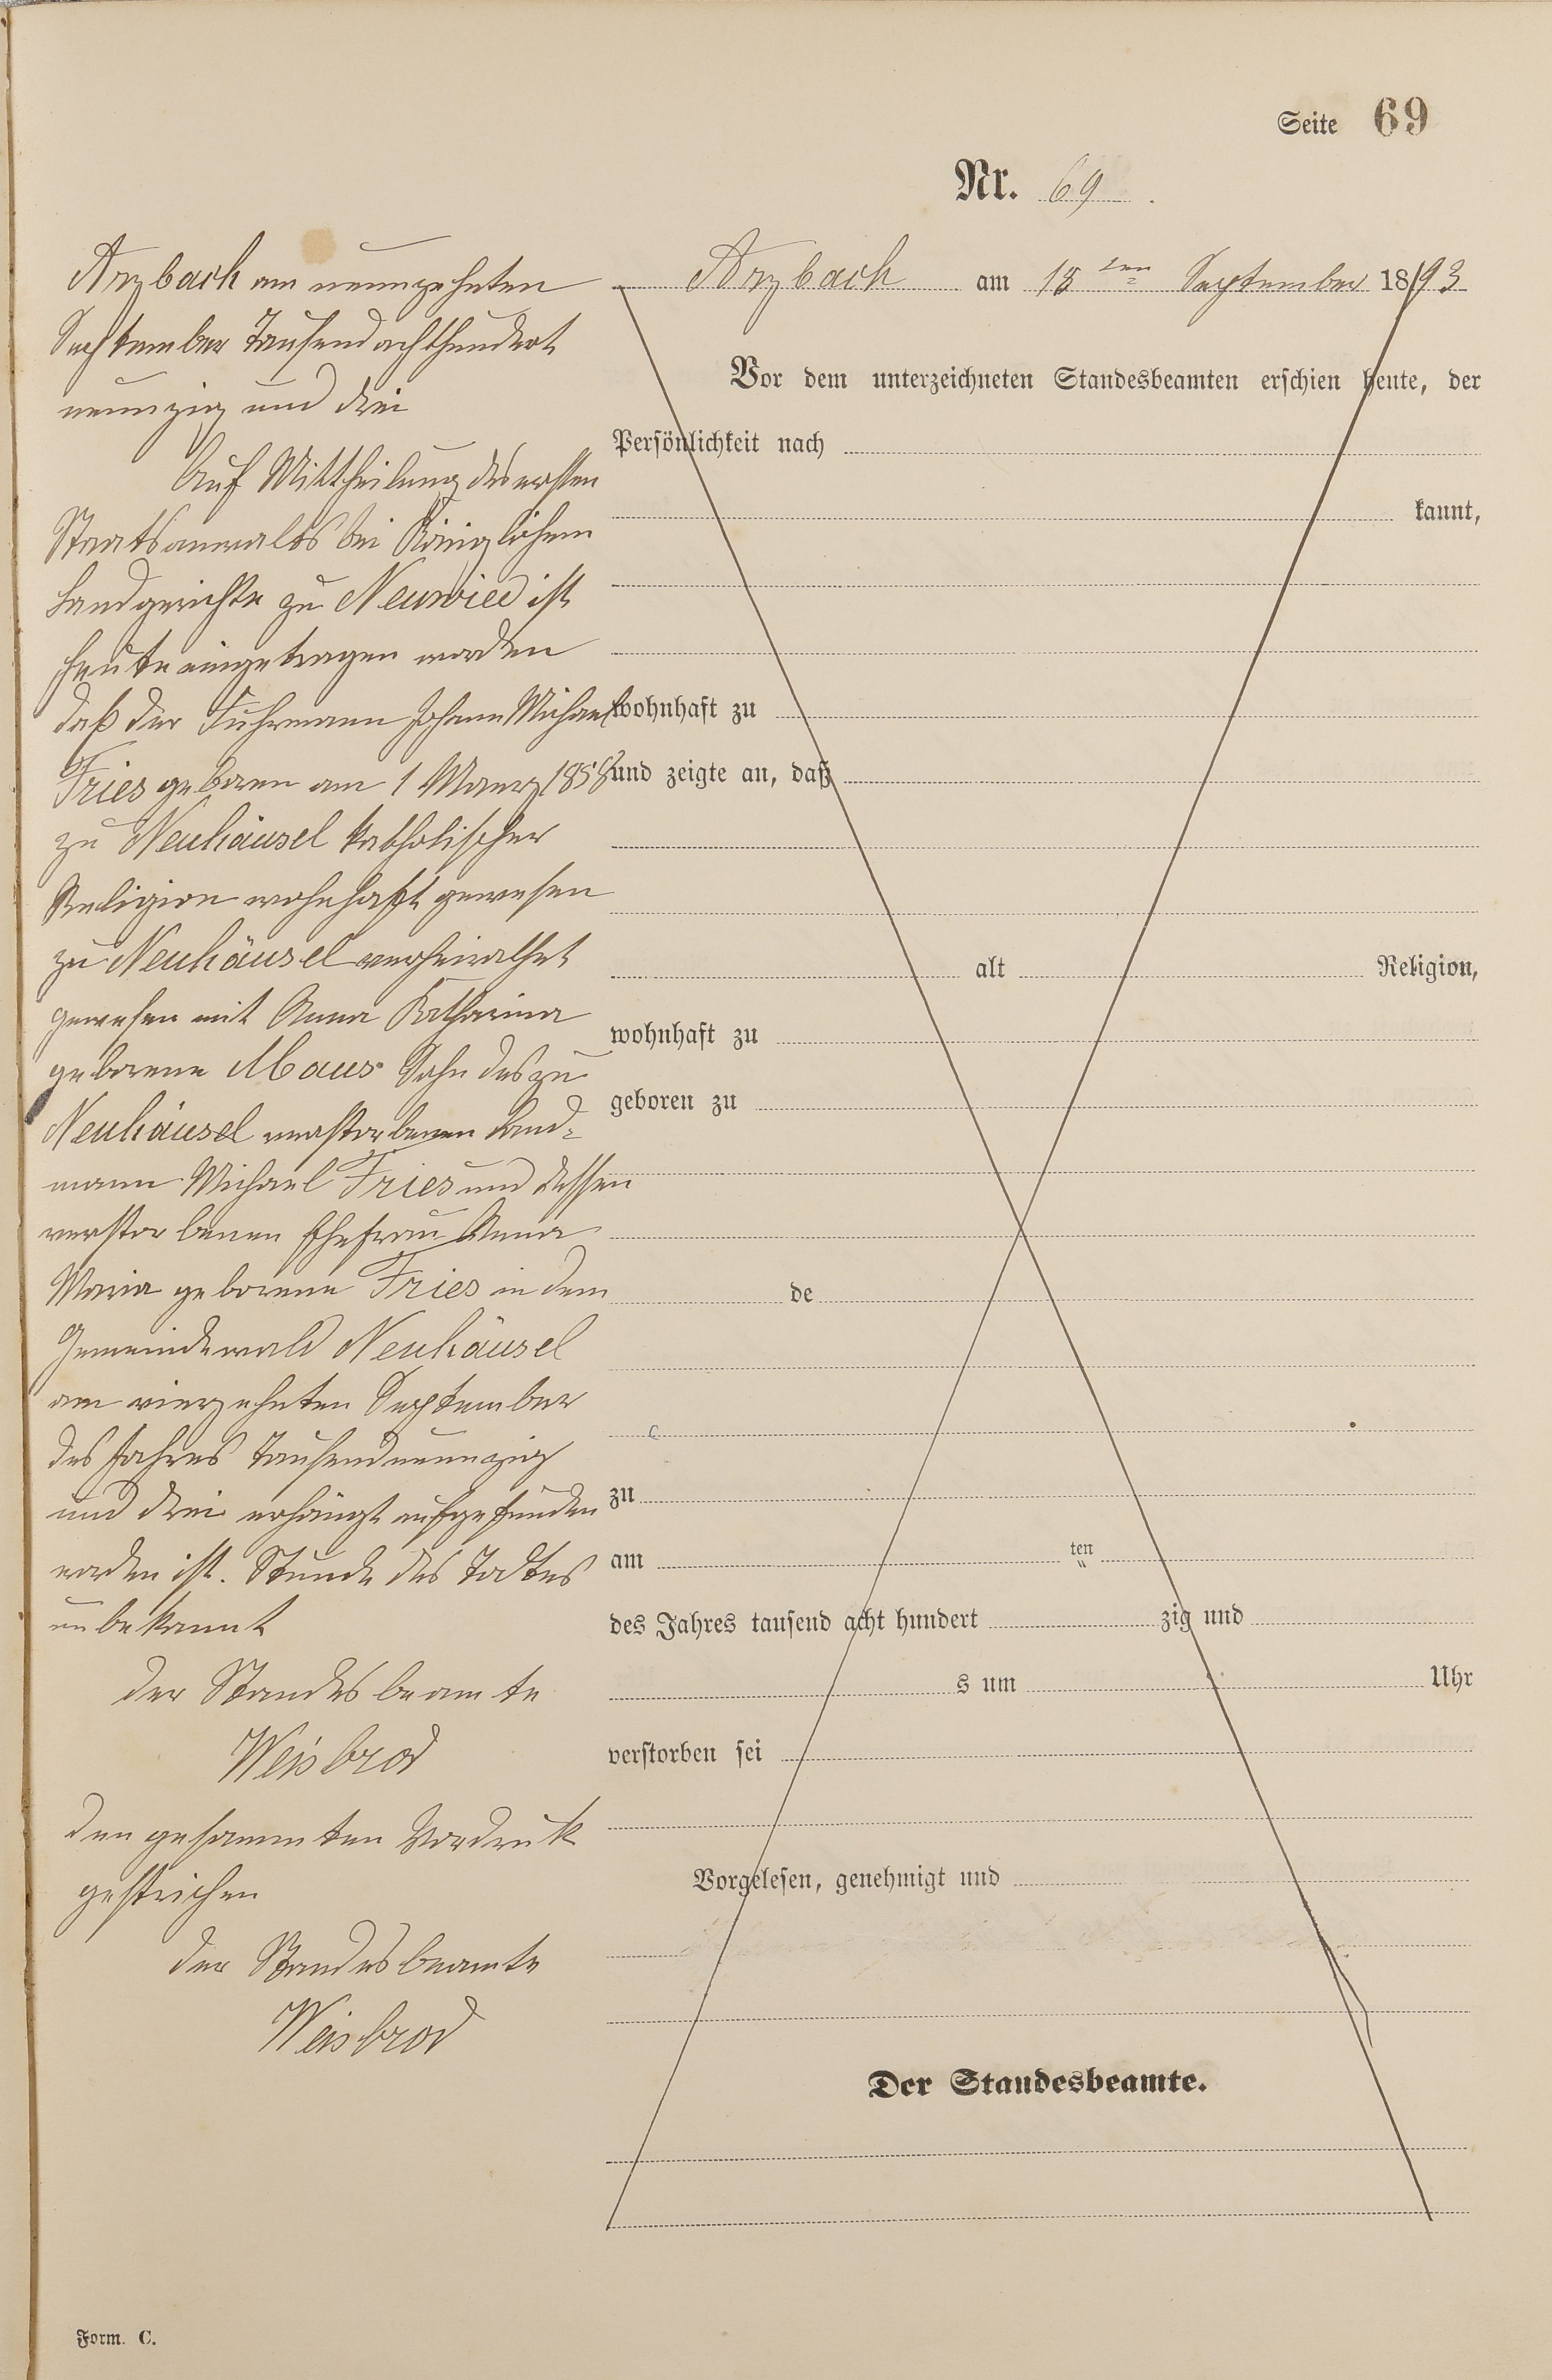 Seite 69
Nr. 69.
Arzbach am neunzehnten
September Tausendachthundert
neunzig und drei
Auf Mittheilung des ersten
Staatsanwalts bei Königlichem
Landgerichte zu Neuwied ist
heute eingetragen worden
daß der Fuhrmann Johann Michael
Fries geboren am 1 Maerz 1858
zu Neuhäusel katholischer
Religion wohnhaft gewesen
zu Neuhäusel verheirathet
gewesen mit Anna Katharina
geborene Maus Sohn des zu
Neuhäusel verstorbenen Land-
mann Michael Fries und dessen
verstorbenen Ehefrau Anna
Maria geborene Fries in dem
Gemeindewald Neuhäusel
am vierzehnten September
des Jahres Tausendneunzig
und drei erhängt aufgefunden
worden ist. Stunde des Todtes
unbekannt
der Standesbeamte
Weisbrod
den gesammten Vordruk
gestrichen
der Standesbeamte
Weisbrod
Arzbach am 18ten September 1893
Vor dem unterzeichneten Standesbeamten erschien heute, der
Persönlichkeit nach
kannt,
wohnhaft zu
und zeigte an, daß
alt Religion,
wohnhaft zu
geboren zu
de
zu
am ten
des Jahres tausend acht hundert zig und
s um Uhr
verstorben sei
Vorgelesen, genehmigt und
Der Standesbeamte.
Form. C.